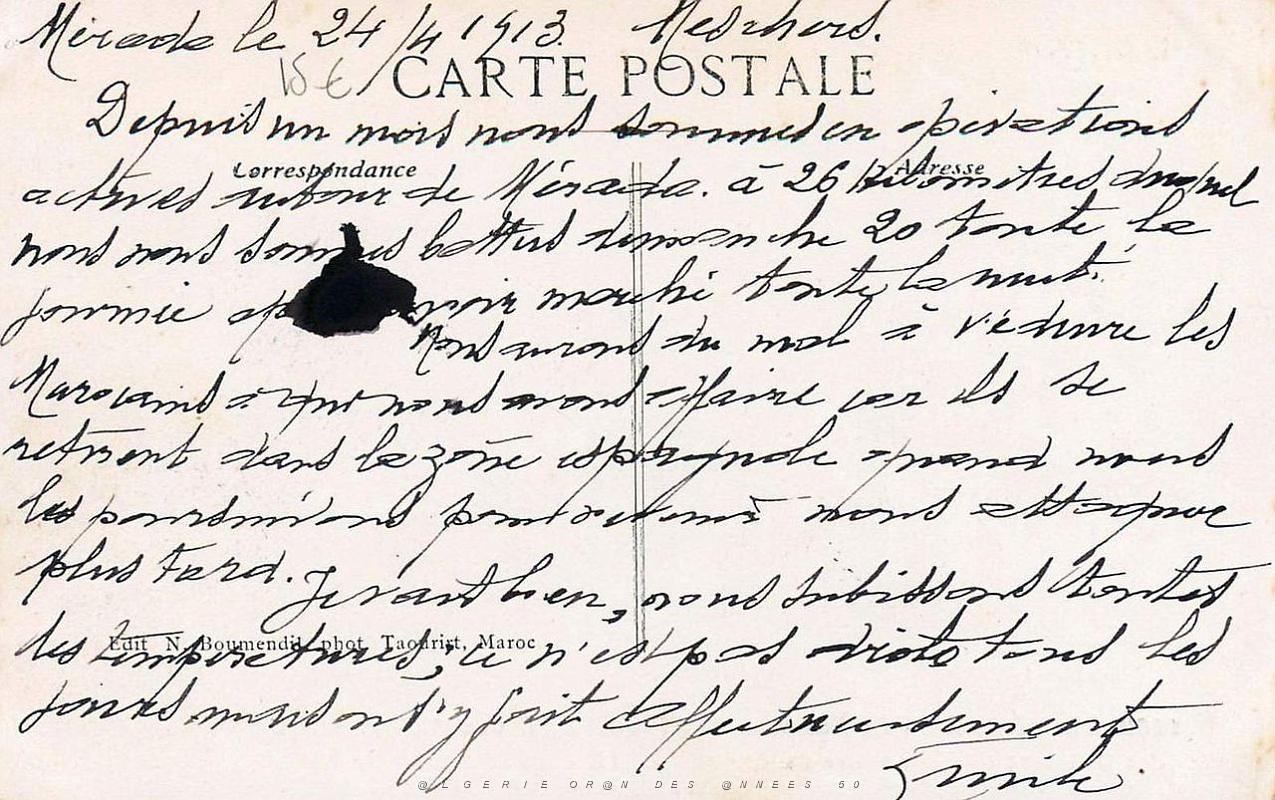 Mérada le 24/4 1913. Mes chers.
15 €
CARTE POSTALE
Depuis un mois nous sommes en opérations
Correspondance
Adresse
actives autour de Mérada. à 26 kilomètres du sud
nous nous sommes battus dimanche 20 toute la
journée ap voir marché toute la nuit.
Nous aurons du mal à réduire les
Marocains à qui nous avons affaire car ils se
retirent dans la zone espagnole quand nous
les poursuivons pour revenir nous attaquer
plus tard.
Je vais bien, nous subissons toutes
Edit N. Boumendil phot Taourirt, Maroc
les températures, ce n'est pas tous les
jours mais on s'y fait affectueusement
Emile
@LGERIE OR@N DES @NNEES 50